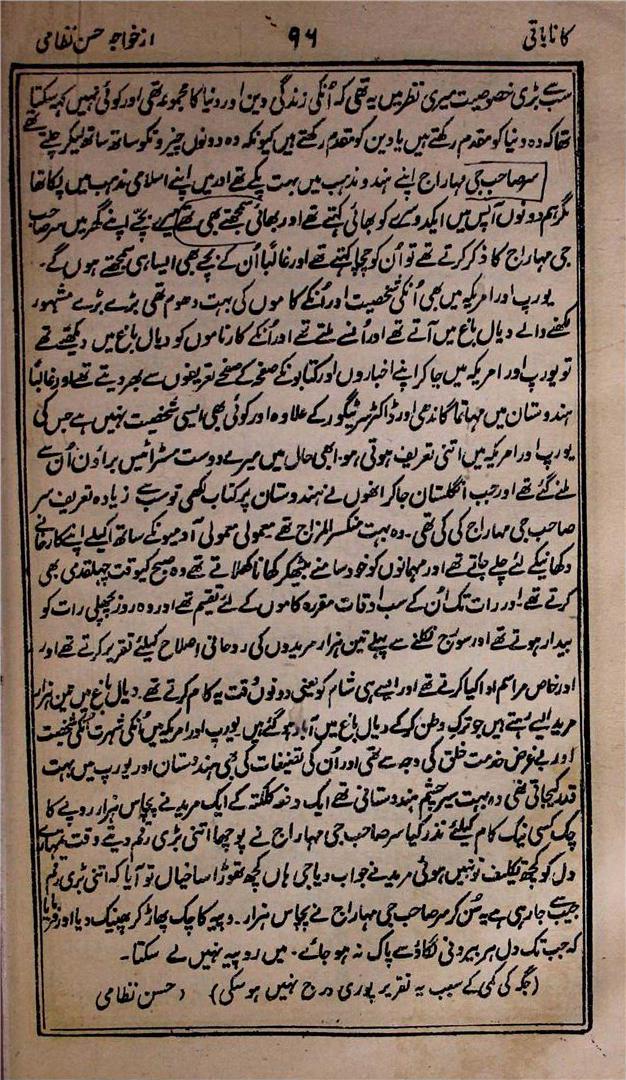 کانا باتی ۹۶ از خواجہ حسن نظامی
سب سے بڑی خصوصیت میری نظر میں یہ تھی کہ اُنکی زندگی دین اور دنیا کا مجموعہ تھی اور کوئی نہیں کہہ سکتا
تھا کہ وہ دنیا کو مقدم رکھتے ہیں یا دین کو مقدم رکھتے ہیں کیونکہ وہ دونوں چیزونکو ساتھ ساتھ لیکر چلتے تھے
سر صاحب جی مہاراج اپنے ہندو مذہب میں بہت پکے تھے اور میں اپنے اسلامی مذہب میں پکا تھا
مگر ہم دونوں آپس میں ایکدوسرے کو بھائی کہتے تھے اور بھائی سمجھتے بھی تھے میرے بچے اپنے گھر میں سر صاحب
جی مہاراج کا ذکر کرتے تھے تو اُن کو چچا کہتے تھے اور غالباً اُن کے بچے بھی ایسا ہی سمجھتے ہوں گے۔
یورپ اور امریکہ میں بھی اُنکی شخصیت اور اُنکے کاموں کی بہت دھوم تھی بڑے بڑے مشہور
لکھنے والے دیال باغ میں آتے تھے اور اُنسے ملتے تھے اور اُنکے کارناموں کو دیال باغ میں دیکھتے تھے
تو یورپ اور امریکہ میں جا کر اپنے اخباروں اور کتابونکے صفحے کے صفحے تعریفوں سے بھر دیتے تھے اور غالباً
ہندوستان میں مہاتما گاندھی اور ڈاکٹر سر ٹیگور کے علاوہ اور کوئی بھی ایسی شخصیت نہیں ہے جس کی
یورپ اور امریکہ میں اتنی تعریف ہوتی ہو۔ ابھی حال میں میرے دوست مسٹر اٹیس براؤن اُن سے
ملنے گئے تھے اور جب انگلستان جا کر انھوں نے ہندوستان پر کتاب لکھی تو سب سے زیادہ تعریف سر
صاحب جی مہاراج کی کی تھی۔ وہ بہت منکسر المزاج تھے معمولی معمولی آدمیونکے ساتھ اکیلے اپنے کارخانے
دکھانیکے لئے چلے جاتے تھے اور مہمانوں کو خود سامنے بیٹھکر کھانا کھلاتے تھے وہ صبح کیوقت چہلقدمی بھی
کرتے تھے۔ اور رات تک اُن کے سب اوقات مقررہ کاموں کے لئے تقسیم تھے اور وہ روز پچھلی رات کو
بیدار ہوتے تھے اور سورج نکلنے سے پہلے تین ہزار مریدوں کی روحانی اصلاح کیلئے تقریر کرتے تھے اور
اور خاص مراسم ادا کیا کرتے تھے اور ایسے ہی شام کو یعنی دونوں وقت یہ کام کرتے تھے۔ دیال باغ میں تین ہزار
مرید ایسے رہتے ہیں جو ترک وطن کر کے دیال باغ میں آباد ہو گئے ہیں یورپ اور امریکہ میں اُنکی شہرت اُنکی شخصیت
اور بے غرض خدمت خلق کی وجہ سے تھی اور اُن کی تصنیفات کی بھی ہندوستان اور یورپ میں بہت
قدر کیجاتی تھی وہ بہت سیر چشم ہندوستانی تھے ایک دفعہ کلکتہ کے ایک مرید نے پچاس ہزار روپے کا
چک کسی نیک کام کیلئے نذر کیا سر صاحب جی مہاراج نے پوچھا اتنی بڑی رقم دیتے وقت تمہارے
دل کو کچھ تکلیف تو نہیں ہوئی مرید نے جواب دیا جی ہاں کچھ تھوڑا سا خیال تو آیا کہ اتنی بڑی رقم
جیب سے جا رہی ہے یہ سُن کر سر صاحب جی مہاراج نے پچاس ہزار روپیہ کا چک پھاڑ کر پھینک دیا اور فرمایا
کہ جب تک دل ہر بیرونی لگاؤ سے پاک نہ ہو جائے۔ میں روپیہ نہیں لے سکتا۔
(جگہ کی کمی کے سبب یہ تقریر پوری درج نہیں ہو سکی) (حسن نظامی